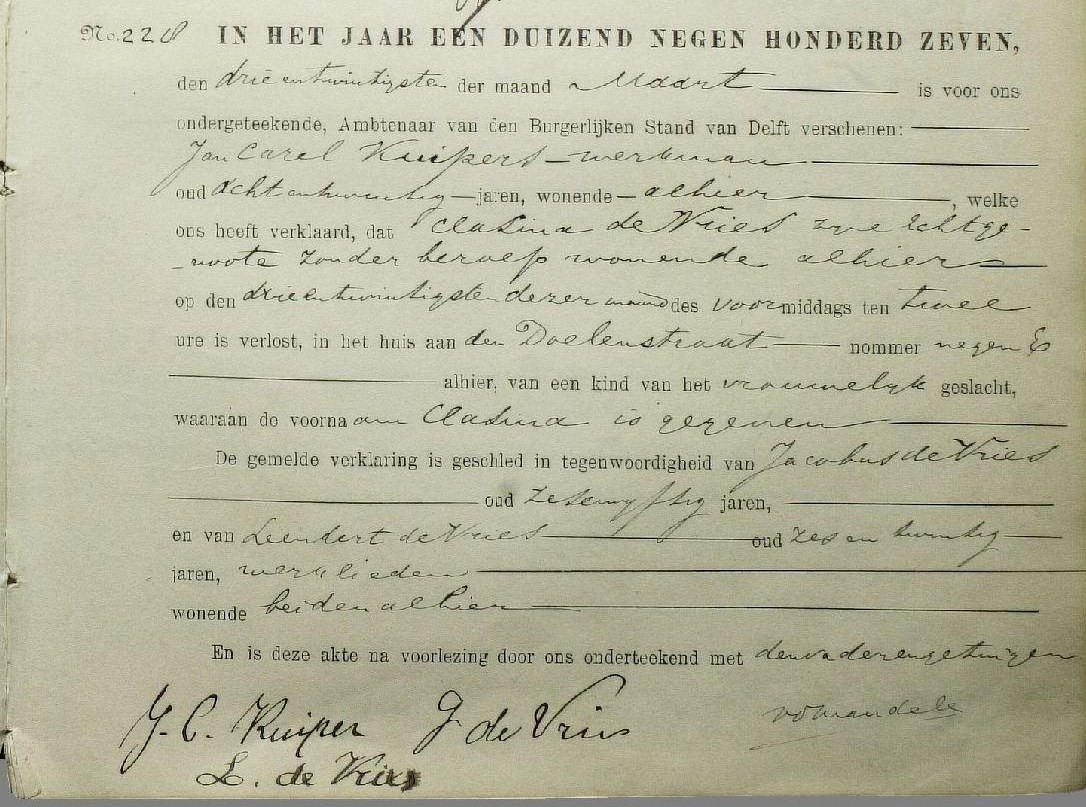 No. 228 IN HET JAAR EEN DUIZEND NEGEN HONDERD ZEVEN,
den drieentwintigsten der maand Maart is voor ons
ondergeteekende, Ambtenaar van den Burgerlijken Stand van Delft verschenen:
Jan Carel Kuipers werkman
oud achtentwintig jaren, wonende alhier, welke
ons heeft verklaard, dat Clasina de Vries zyne Echtge-
noote zonder beroep wonende alhier
op den drieentwintigsten dezer maand des voormiddags ten twee
ure is verlost, in het huis aan den Doelenstraat nommer negen
alhier, van een kind van het vrouwelyk geslacht,
waaraan de voornaam Clasina is gegeven
De gemelde verklaring is geschied in tegenwoordigheid van Jacobus de Vries
oud zesenvyftig jaren,
en van Leendert de Vries oud zesentwintig
jaren, werklieden
wonende beiden alhier
En is deze akte na voorlezing door ons onderteekend met den vader en getuigen
J. C. Kuiper J. de Vries
L. de Vries